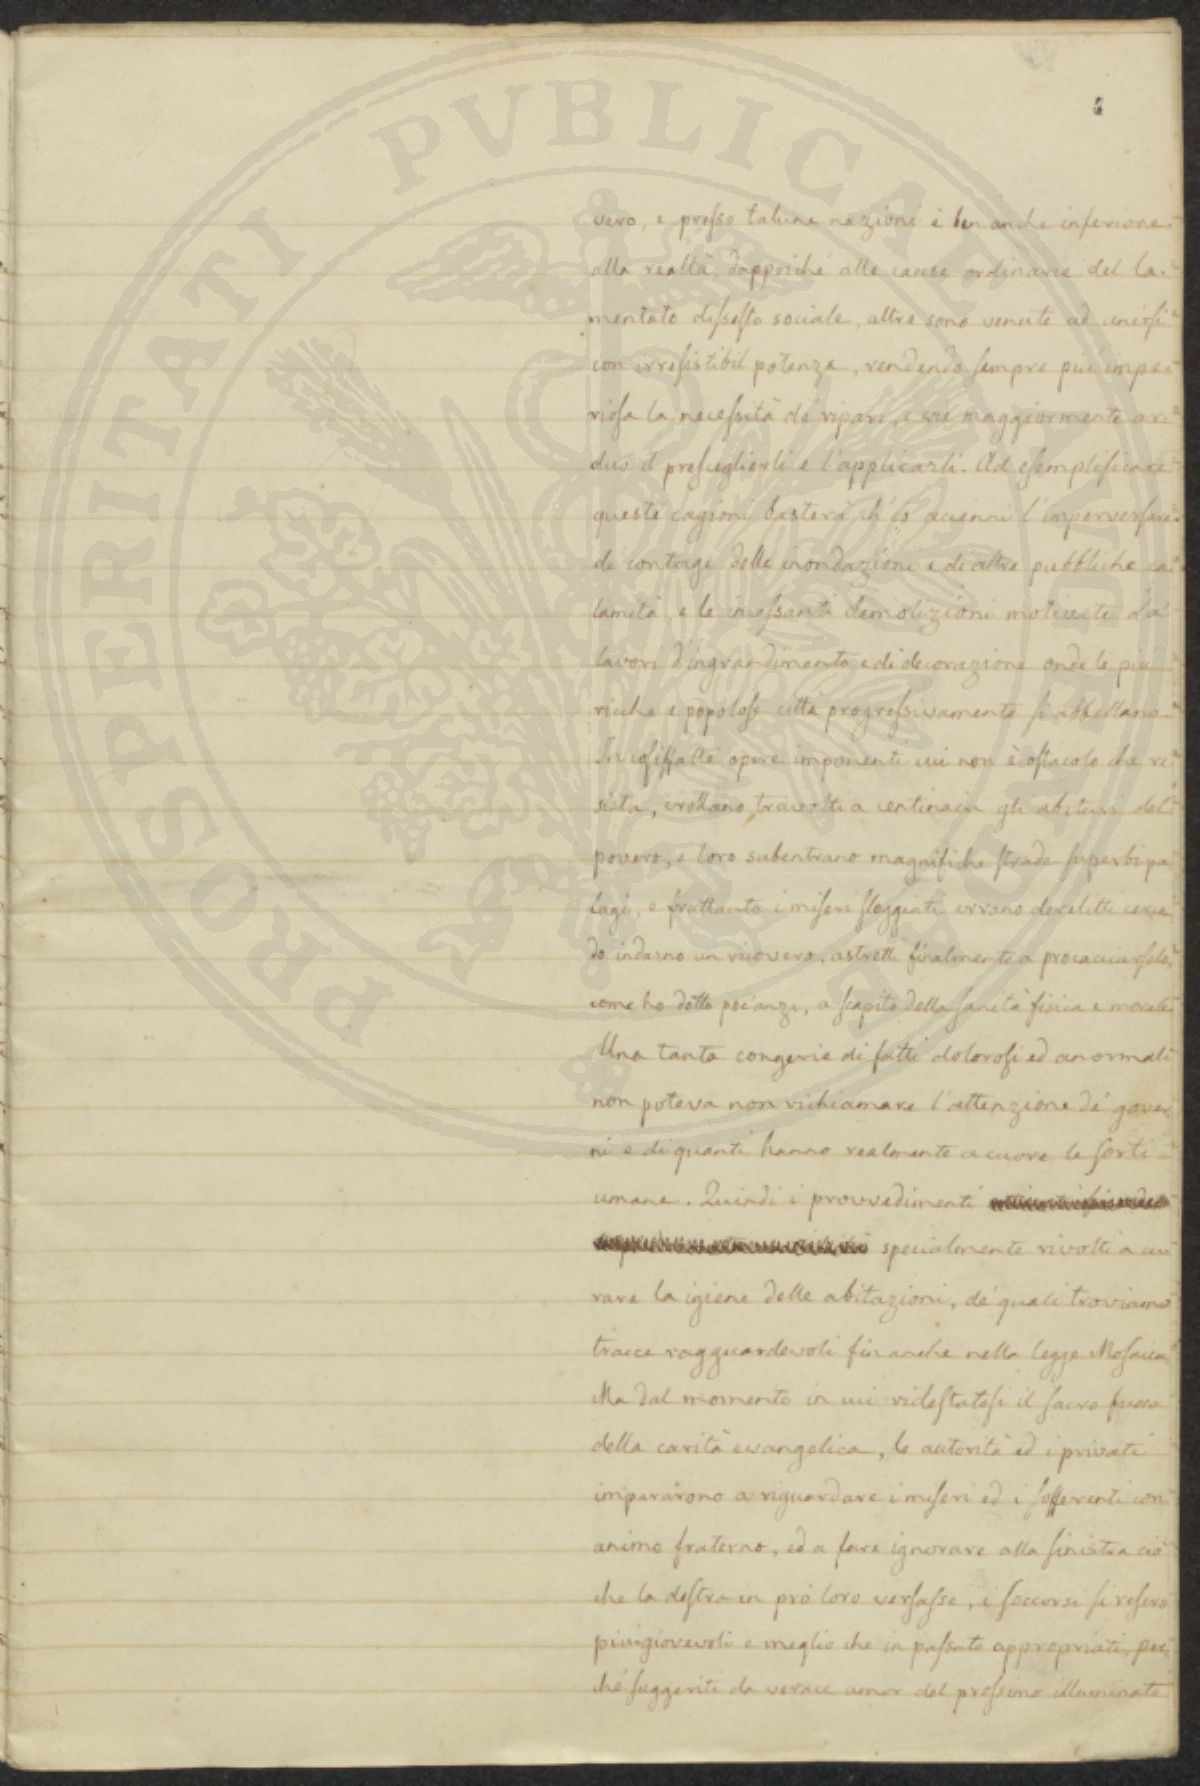 PROSPERITATI PVBLICAE
vero, e presso talune nazioni è ben anche inferiore
alla realtà, dappoiché alle cause ordinarie del la-
mentato dissesto sociale, altre sono venute ad unirsi
con irresistibil potenza, rendendo sempre più impe-
riosa la necessità de' ripari, e vie maggiormente ar-
duo il presceglierli e l'applicarli. Ad esemplificare
queste cagioni basterà ch'io accenni l'imperversare
de' contagi delle inondazioni e di altre pubbliche ca
lamità, e le incessanti demolizioni motivate da'
lavori d'ingrandimento e di decorazione onde le più
ricche e popolose città progressivamente si abbellano.
In cosiffatte opere imponenti cui non è ostacolo che re
sista, crollano travolti a centinaia gli abituri del
povero, e loro subentrano magnifiche strade superbi pa
lagi, e frattanto i miseri sloggiati errano derelitti cercan
do indarno un ricovero, astretti finalmente a procacciarselo,
come ho detto poc'anzi, a scapito della sanità fisica e morale.
Una tanta congerie di fatti dolorosi ed anormali
non poteva non richiamare l'attenzione de' gover
ni e di quanti hanno realmente a cuore le sorti
umane. Quindi i provvedimenti
specialmente rivolti a cu
rare la igiene delle abitazioni, de' quali troviamo
tracce ragguardevoli fin anche nella legge Mosaica.
Ma dal momento in cui ridestatosi il sacro fuoco
della carità evangelica, le autorità ed i privati
impararono a riguardare i miseri ed i sofferenti con
animo fraterno, ed a fare ignorare alla sinistra ciò
che la destra in prò loro versasse, i soccorsi si resero
più giovevoli e meglio che in passato appropriati, per-
ché suggeriti da verace amor del prossimo illuminato